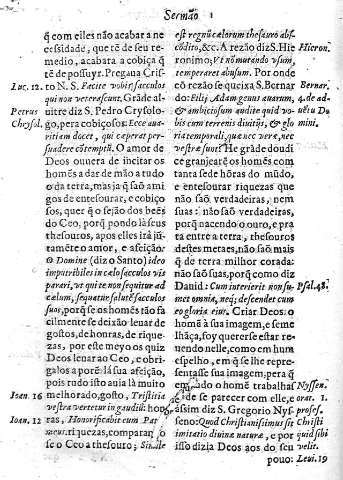 Sermão I
q̃ com elles não acaba a ne
cessidade, que tẽ de seu re-
medio, acabara a cobiça q̃
tẽ de possuyr. Pregaua Cris-
Luc. 12. to N. S. Facite vobis sacculos
qui non veterascunt. Grãde al-
Petrus uitre diz S. Pedro Crysolo-
Chrysol. go, pera cobiçosos: Ecce aua-
ritiam docet, qui cœperat per-
suadere cõtemptũ. O amor de
Deos ouuera de incitar os
homẽs a das de mão a tudo
o da terra, mas ja q̃ saõ ami
gos de entesourar, e cobiço
sos, quer q̃ o sejão dos beẽs
do Ceo, porq̃ pondo lá seus
thesouros, apos elles irá jũ-
tamẽte o amor, e afeição:
O Domine (diz o Santo) ideo
imputribiles in cælo sacculos vis
parari, vt qui te non sequitur ad
cælum, sequatur saltẽ sacculos
suos, porq̃ se os homẽs tão fa
cilmente se deixão leuar de
gostos, de honras, de rique-
zas, por este meyo os quiz
Deos leuar ao Ceo, e obri-
galos a porẽ lá sua afeição,
pois tudo isto auia lá muito
Ioan. 16 melhorado, gosto, Tristitia
vestra vertetur in gaudiũ: hon
Ioan. 12 ras, Honorificabit eum Pat
meus. riquezas, comparan
se o Ceo a thesouro; Simile
est regnũ cælorum thesauro abs-
cõdito, &c. A rezão diz S. Hie Hieron.
ronimo; Vt nõ mutando vsum,
temperaret abusum. Por onde
cõ rezão se queixa S. Bernar Bernar.
do: Filij Adam genus auarum, 4. de ad-
& ambitiosum audite quid vo- uẽtu Do
bis cum terrenis diuitijs, & glo mini.
ria temporali, quæ nec veræ, nec
vestræ sunt? He grãde doudi
ce grangearẽ os homẽs com
tanta sede horas do mũdo,
e entesourar riquezas que
não saõ verdadeiras, nem
suas: não saõ verdadeiras,
porq̃ nacendo o ouro, e pra
ta entre a terra, thesouros
destes metaes, não saõ mais
q̃ de terra milhor corada:
não saõ suas, porq̃ como diz
Dauid: Cum interierit non su- Psal. 48.
met omnia, neq; descendet cum
eo gloria eius. Criar Deos: o
homẽ à sua imagem, e seme
lhãça, foy quererse estar re-
uendo nelle, como em hum
espelho, em q̃ se lhe repre-
sentasse sua imagem, pera q̃
em o homẽ trabalhas Nyssen.
de se parecer com elle, e orat. 1.
assim diz S. Gregorio Nys- profes.
seno: Quod Christianismus sit Christi
imitatio diuinæ naturæ, e por quid sibi
isso dizia Deos aos do seu velit.
pouo: Leui. 19